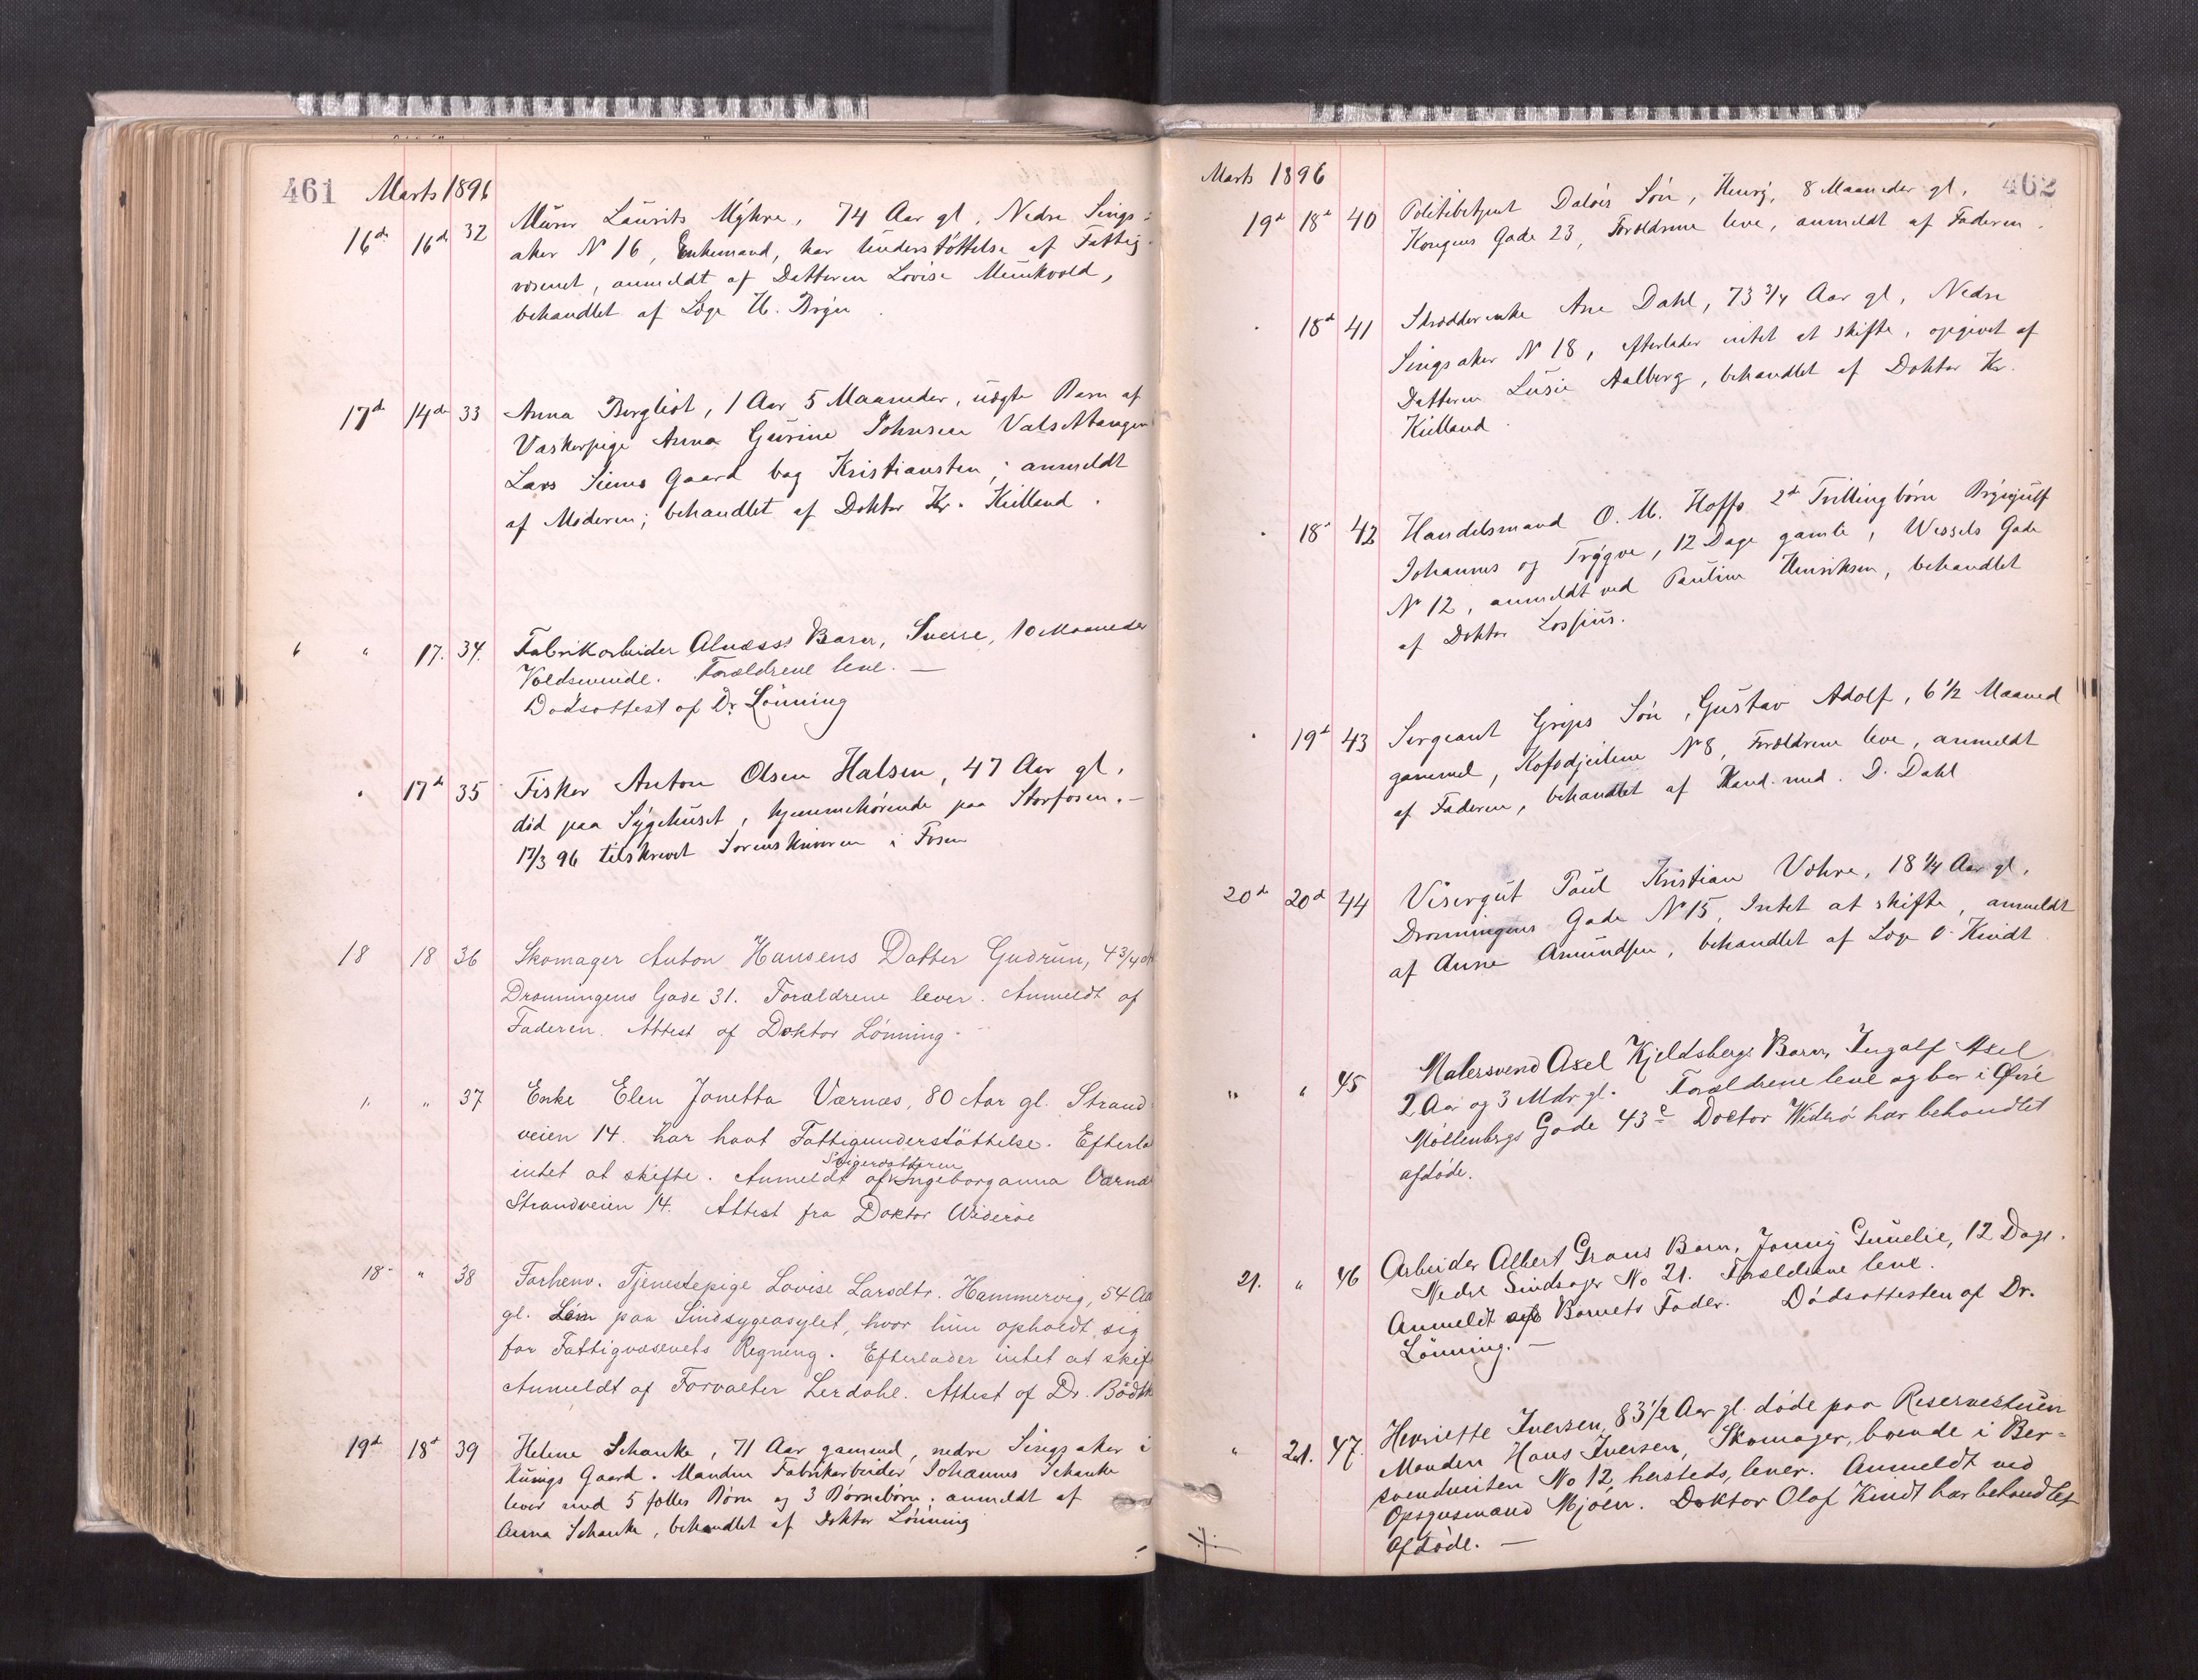 461 Marts 1896
16de 16de 32 Murer Laurits Myhre, 74 Aar gl, Nedre Sings-
aker No 16, Enkemand, har Understøttelse af Fattig-
væsenet, anmeldt af Datteren Lovise Munkvold,
behandlet af Læge U. Bryn
17de 14de 33 Anna Bergliot, 1 Aar 5 Maaneder, uægte Barn af
Vaskerpige Anna Gurine Johnsen
Lars Gaard bag Kristiansten; anmeldt
af Moderen; behandlet af Doktor Kr. Kielland.
" " 17. 34. Fabrikarbeider Alnæss's Barn, Sverre, 10 Maaneder
Voldsminde. Forældrene leve. —
Dødsattest af Dr. Lønning
" 17de 35 Fisker Anton Olsen Halsen, 47 Aar gl,
død paa Sygehuset, hjemmehørende paa Storfosen. —
17/3 96 tilskrevet Sorenskriveren i Fosen
18 18 36 Skomager Anton Hansens Datter Gudrun, 4 3/4 A
Dronningens Gade 31. Forældrene lever. Anmeldt af
Faderen. Attest af Doktor Lønning.
" " 37 Enke Elen Jonetta Værnæs, 80 Aar gl. Strand-
veien 14. har havt Fattigunderstøttelse. Efterla
Svigerdatteren
intet at skifte. Anmeldt af Ingeborganna Værnæ
Strandveien 14. Attest fra Doktor Widerøe
18 " 38 Forhenv. Tjenestepige Lovise Larsdtr. Hammervig, 54 Aa
gl. paa Sindsygeasylet, hvor hun opholdt sig
for Fattigvæsenets Regning. Efterlader intet at skif
Anmeldt af Forvalter Lerdahl. Attest af Dr. Bødtk
19de 18de 39 Helene Schanke, 71 Aar gammel, nedre Singsaker i
Kunigs Gaard. Manden Fabrikarbeider Johannes Schanke
lever med 5 fælles Børn og 3 Børnebørn; anmeldt af
Anna Schanke, behandlet af Doktor Lønning
Marts 1896 462
19de 18de 40 Politibetjent Daløes Søn, Henry, 8 Maaneder gl,
Kongens Gade 23, Forældrene leve, anmeldt af Faderen.
" 18de 41 Skrædderenke Ane Dahl, 73 3/4 Aar gl, Nedre
Singsaker No 18, efterlader intet at skifte, opgivet af
Datteren Lusie Aalberg, behandlet af Doktor Kr.
Kielland.
" 18de 42 Handelsmand O. M. Hoffs 2de Tvillingbørn Brynjulf
Johannes og Trygve, 12 Dage gamle, Wessels Gade
No 12, anmeldt ved Pauline Henriksen, behandlet
af Doktor Lossius.
" 19de 43 Sergeant Grips Søn, Gustav Adolf, 6 1/2 Maaned
gammel, Kofodjeilene No 8, Forældrene leve, anmeldt
af Faderen, behandlet af Kand. med. D. Dahl
20de 20de 44 Visergut Paul Kristian Vohre, 18 1/4 Aar gl,
Dronningens Gade No 15, Intet at skifte, anmeldt
af Anne Amundsen, behandlet af Læge O. Kindt
" " 45 Malersvend Axel Kjeldsbergs Barn, Ingolf Axel
2 Aar og 3 Mdr gl. Forældrene leve og bor i Øvre
Møllenbergs Gade 43c Doctor Widerø har behandlet
afdøde.
21. " 46 Arbeider Albert Grans Barn, Jonny Gunelie, 12 Dage.
Nedre Sindsager No 21. Forældrene leve.
Anmeldt af Barnets Fader. Dødsattesten af Dr.
Lønning. —
" 21. 47. Henriette Iversen, 83 1/2 Aar gl. døde paa Reservestuen
Manden Hans Iversen, Skomager, boende i Ber-
svendveiten No 12, hersteds, lever. Anmeldt ved
Opsynsmand Mjøen. Doktor Olaf Kindt har behandlet
afdøde. —